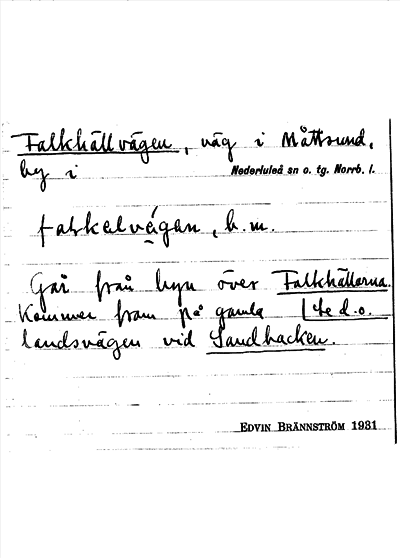 Falkhällvägen, väg i Måttsund,
by i Nederluleå sn o. tg. Norrb. l.
falkelvé̱gen, b. m.
Går från byn över Falkhällarna.
Kommer fram på gamla | se d.o.
landsvägen vid Sandbacken.
EDVIN BRÄNNSTRÖM 1931